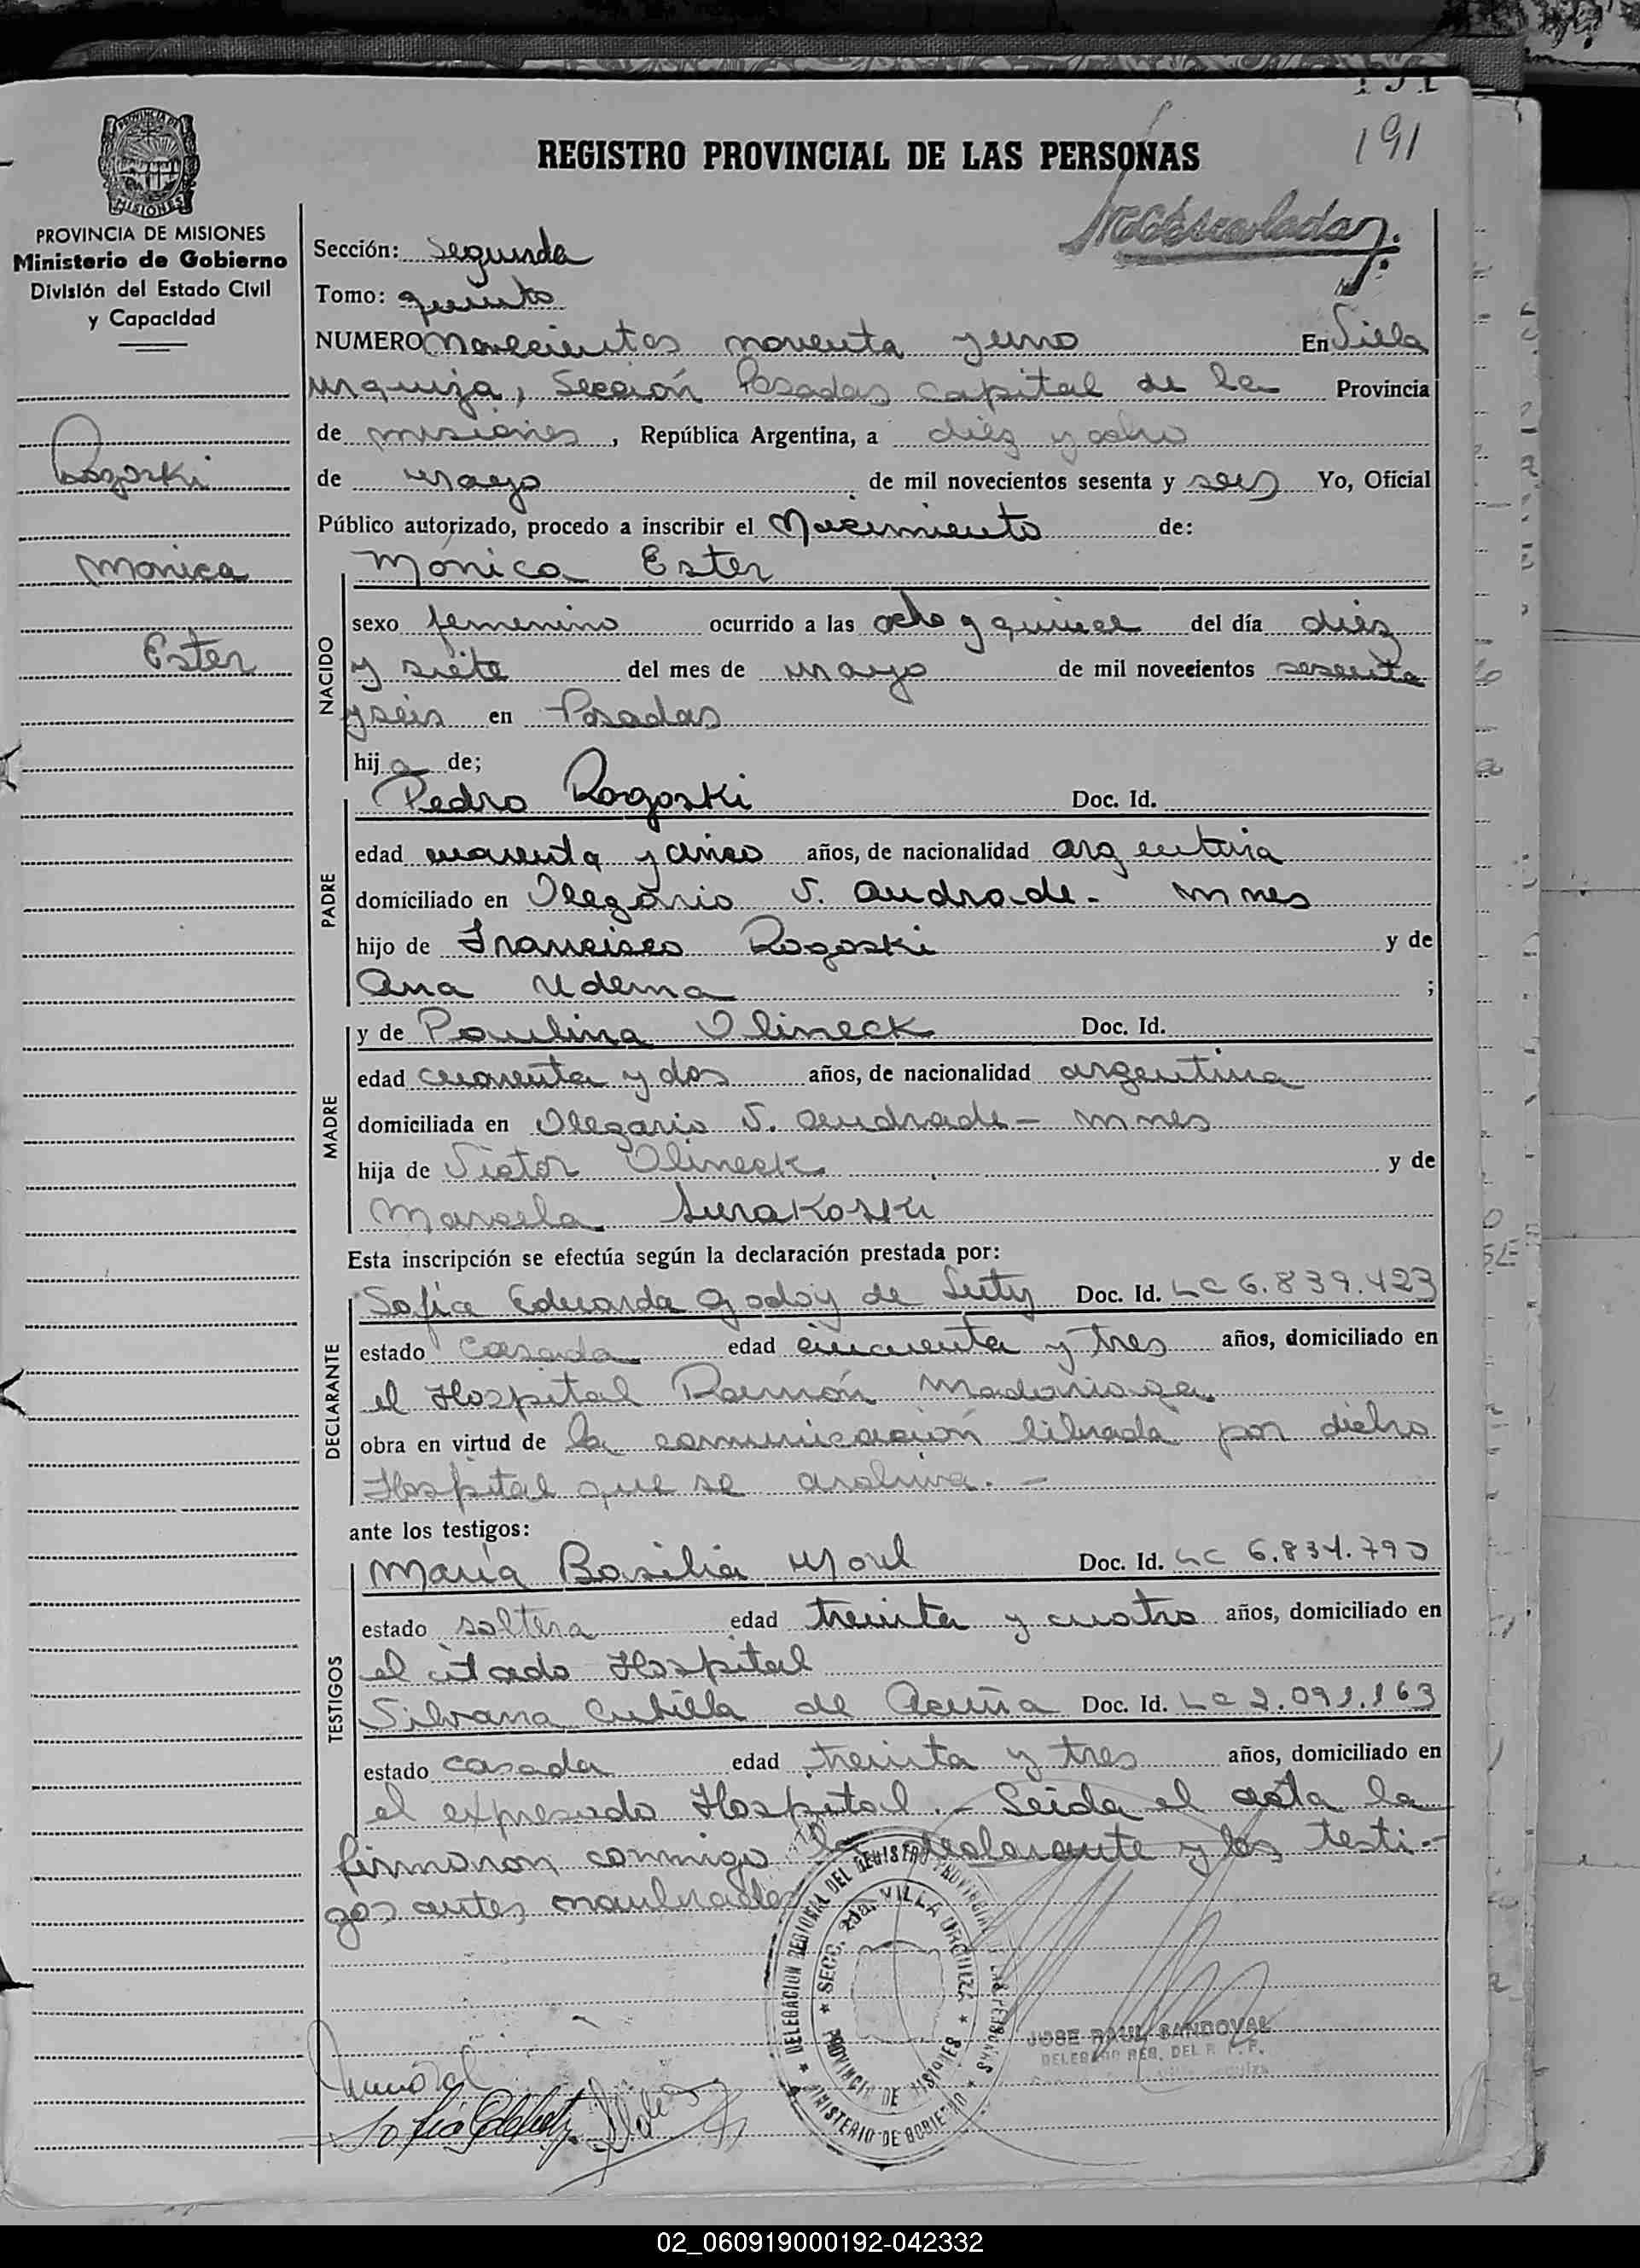 191
191
REGISTRO PROVINCIAL DE LAS PERSONAS
PROVINCIA DE MISIONES
PROVINCIA DE MISIONES
Ministerio de Gobierno
División del Estado Civil
y Capacidad
Rogoski
Monica
Ester
Sección: Segunda
Tomo: quinto
NUMERO Novecientos noventa y uno En Villa
Urquiza, Sección Posadas capital de la Provincia
de misiones, República Argentina, a diez y ocho
de mayo de mil novecientos sesenta y seis Yo, Oficial
Público autorizado, procedo a inscribir el Nacimiento de:
Mónica Ester
NACIDO
sexo femenino ocurrido a las ocho y quince del día diez
y siete del mes de mayo de mil novecientos sesenta
y seis en Posadas
hija de;
PADRE
Pedro Rogoski Doc. Id.
edad cuarenta y cinco años, de nacionalidad argentina
domiciliado en Olegario V. Andrade - Mnes
hijo de Francisco Rogoski y de
Ana Udema ;
MADRE
y de Paulina Olineck Doc. Id.
edad cuarenta y dos años, de nacionalidad argentina
domiciliada en Olegario V. Andrade - Mnes
hija de Victor Olineck y de
Marcela Surakoski
Esta inscripción se efectúa según la declaración prestada por:
DECLARANTE
Sofía Eduarda Godoy de Doc. Id. LC 6.839.423
estado casada edad cincuenta y tres años, domiciliado en
el Hospital Ramón Madariaga.
obra en virtud de la comunicación librada por dicho
Hospital que se archiva. -
ante los testigos:
TESTIGOS
María Basilia Doc. Id. LC 6.834.790
estado soltera edad treinta y cuatro años, domiciliado en
el citado Hospital
Silvana Cubilla de Acuña Doc. Id. LC 2.091.163
estado casada edad treinta y tres años, domiciliado en
el expresado Hospital. - Leida el acta la
firmaron conmigo la declarante y los testi-
gos antes nombrados
DELEGACION REGIONAL DEL REGISTRO PROVINCIAL DE LAS PERSONAS
SECC. 2da. VILLA URQUIZA
PROVINCIA DE MISIONES
MINISTERIO DE GOBIERNO
JOSE RAUL SANDOVAL
DELEGADO REG. DEL R. P. P.
02_060919000192-042332